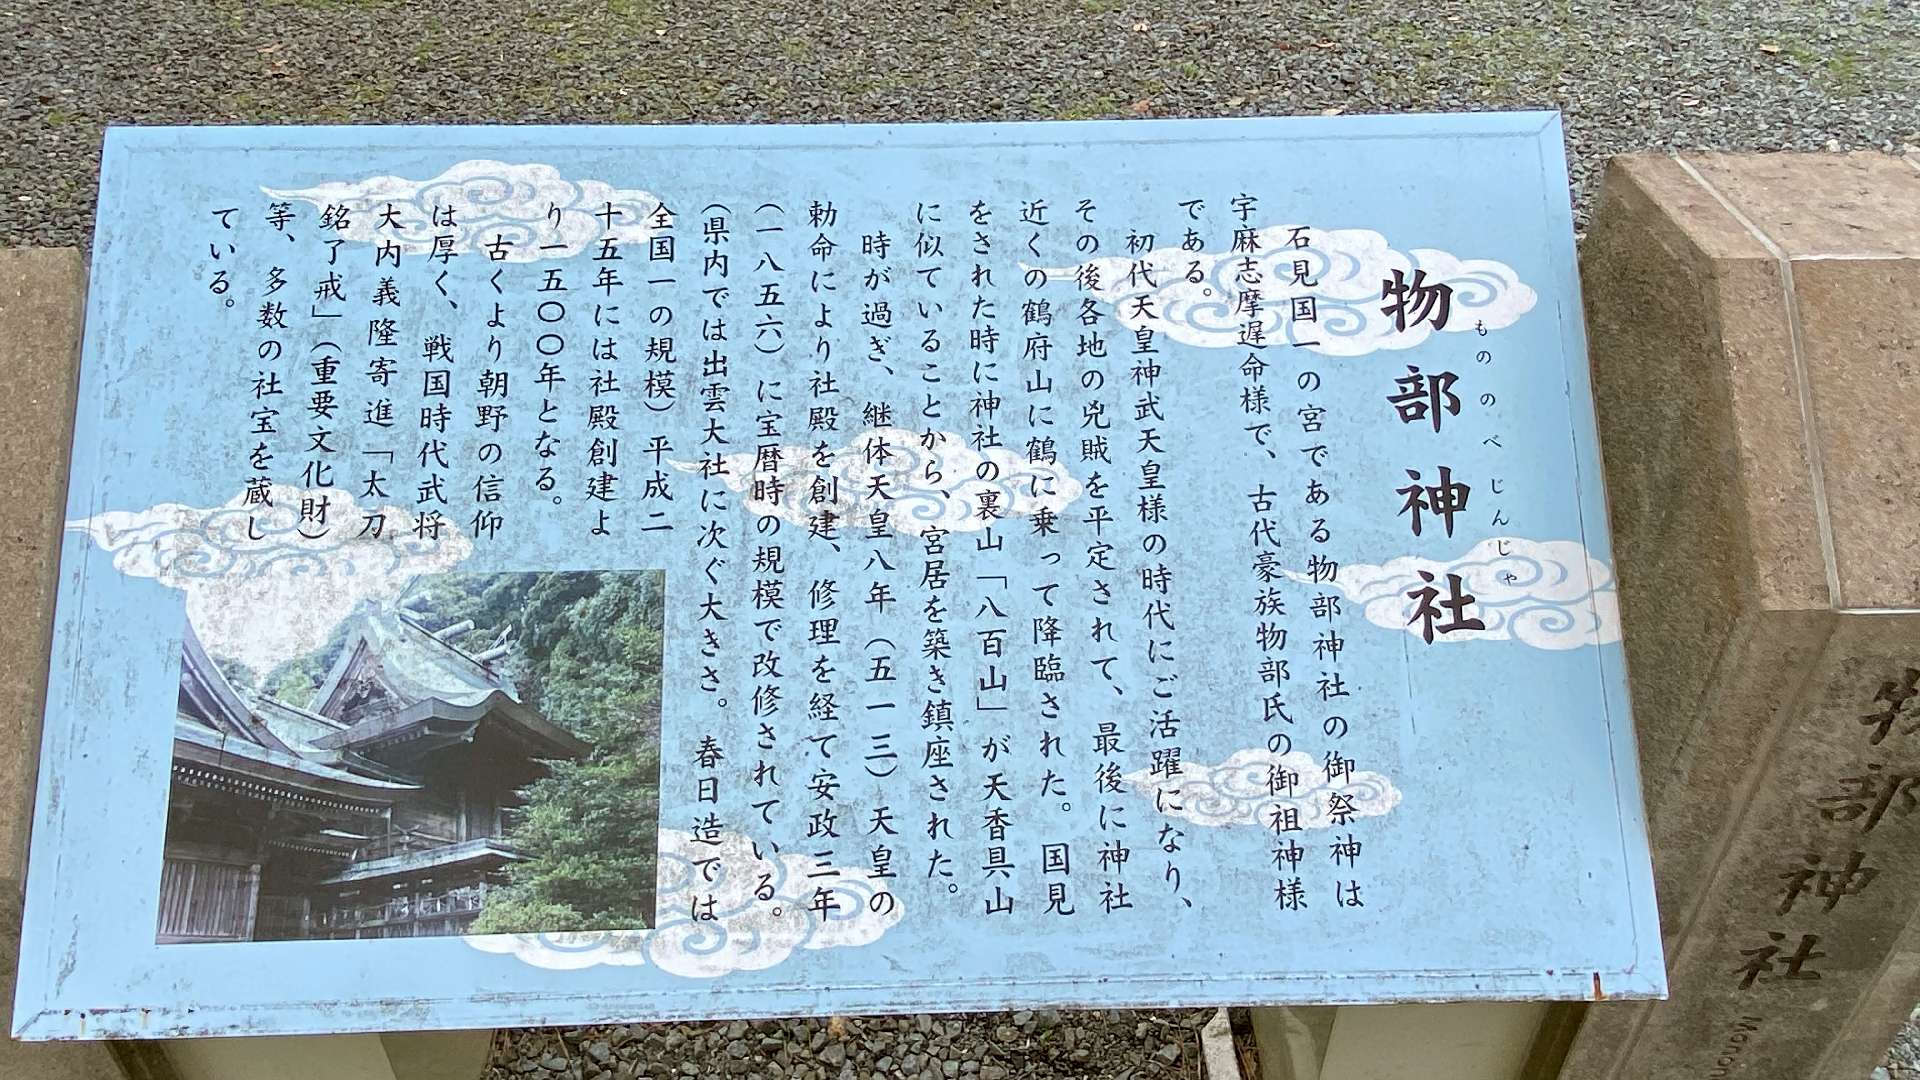 物部神社
もののべじんじゃ
石見国一の宮である物部神社の御祭神は
宇麻志摩遅命様で、古代豪族物部氏の御祖神様
である。
初代天皇神武天皇様の時代にご活躍になり、
その後各地の兇賊を平定されて、最後に神社
近くの鶴府山に鶴に乗って降臨された。国見
をされた時に神社の裏山「八百山」が天香具山
に似ていることから、宮居を築き鎮座された。
時が過ぎ、継体天皇八年（五一三）天皇の
勅命により社殿を創建、修理を経て安政三年
（一八五六）に宝暦時の規模で改修されている。
（県内では出雲大社に次ぐ大きさ。春日造では
全国一の規模）平成二
十五年には社殿創建よ
り一五〇〇年となる。
古くより朝野の信仰
は厚く、戦国時代武将
大内義隆寄進「太刀
銘了戒」（重要文化財）
等、多数の社宝を蔵し
ている。
物部神社